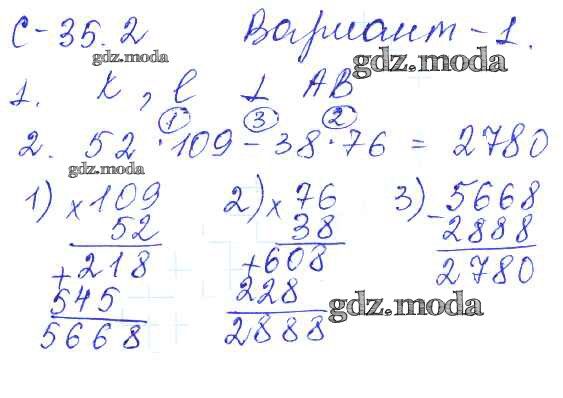 С-35.2 Вариант-1.
gdz.moda gdz.moda
1. К, l ⊥ АВ
① ③ ②
2. 52 · 109 - 38 · 76 = 2780
gdz.moda
1) × 109 2) × 76 3) - 5668
52 38 2888
+ 218 + 608 2780
545 228 gdz.moda
5668 2888